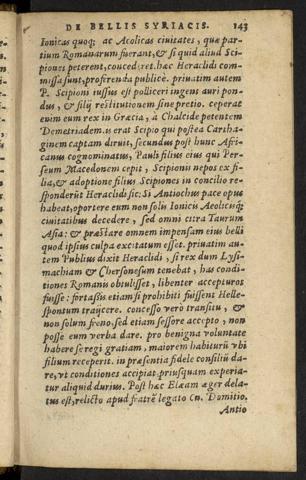 DE BELLIS SYRIACIS. 143
Ionicas quoq; ac Aeolicas ciuitates, quæ par-
tium Romanarum fuerant, & si quid aliud Sci-
piones peterent, concederet. hæc Heraclidi com-
missa sunt, proferenda publicè. priuatim autem
P. Scipioni iussus est polliceri ingens auri pon-
dus, & filij restitutionem sine pretio. ceperat
enim eum rex in Græcia, a Chalcide petentem
Demetriadem. is erat Scipio qui postea Cartha-
ginem captam diruit, secundus post hunc Afri-
canus cognominatus, Pauli filius eius qui Per-
seum Macedonem cepit, Scipionis nepos ex fi-
lia, & adoptione filius Scipiones in concilio re-
sponderūt Heraclidi sic: Si Antiochus pace opus
habeat, oportere eum non solis Ionicis Aeolicisq;
ciuitatibus decedere, sed omni citra Taurum
Asia: & præstare omnem impensam eius belli
quod ipsius culpa excitatum esset. priuatim au-
tem Publius dixit Heraclidi, si rex dum Lysi-
machiam & Chersonesum tenebat, has condi-
tiones Romanis obtulisset, libenter accepturos
fuisse: fortasis etiam si prohibiti fuissent Helle-
spontum traijcere. concesso verò transitu, &
non solum freno, sed etiam sessore accepto, non
posse eum verba dare. pro benigna voluntate
habere se regi gratiam, maiorem habiturū vbi
filium receperit. in præsentia fidele consiliū da-
re, vt conditiones accipiat priusquam experia-
tur aliquid durius. Post hæc Elæam æger dela-
tus est, relicto apud fratrē legato Cn. Domitio.
Antio